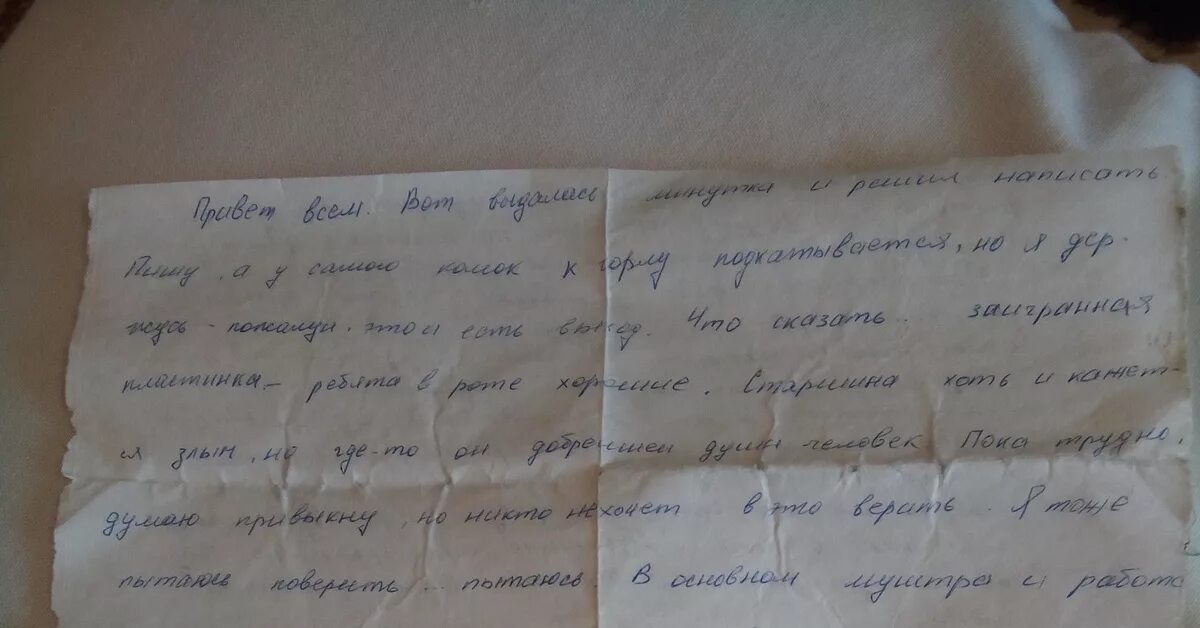 Привет всем. Вот выдалась минутка и решил написать.
Пишу, а у самого комок к горлу подкатывается, но я дер-
жусь - пожалуй этои есть выход. Что сказать.. заигранная
пластинка - ребята в роте хорошие. Старшина хоть и кажет-
ся злым, но где-то он добрейшей души человек Пока трудно,
думаю привыкну, но никто нехочет в это верать. Я тоже
пытаюсь поверить... пытаюсь. В основном муштра и работа